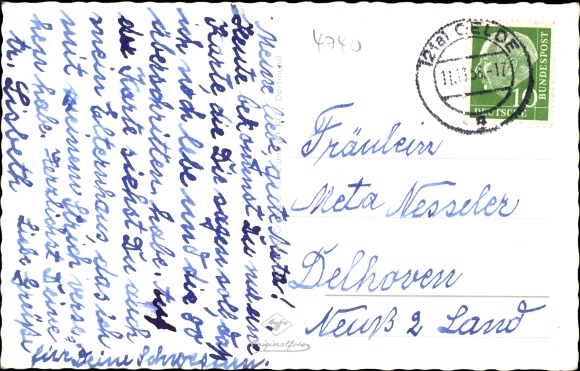 Meine liebe, gute Meta!
Heute bekommst Du nur eine
Karte, die Dir sagen soll, daß
ich noch lebe und die 80
überschritten habe. Auf
der Karte siehst Du auch
mein Elternhaus, das ich
mit meinem Erich
hon habe. Herzlichst Deine
tr. Lisbeth. Liebe Grüße
für Deine Schwestern.
4740
(21a) OELDE
11.11.58.-17
a
10
DEUTSCHE
BUNDESPOST
Fräulein
Meta Nesseler
Delhoven
Neuß 2 Land
Agfa
Originalfoto